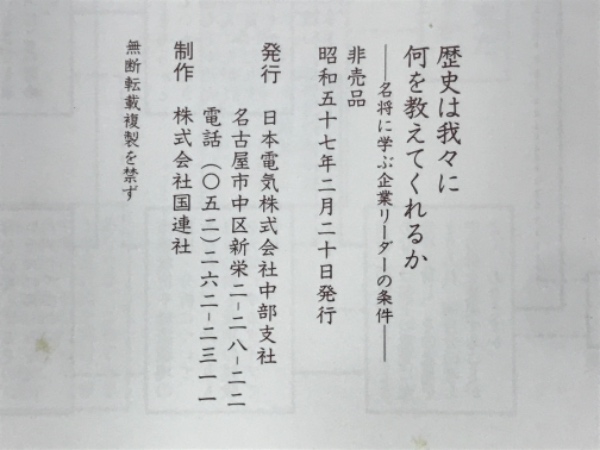 歴史は我々に
何を教えてくれるか
──名将に学ぶ企業リーダーの条件──
非売品
昭和五十七年二月二十日発行
発行　日本電気株式会社中部支社
名古屋市中区新栄二-二八-二二
電話（〇五二）二六二-二三一一
制作　株式会社国連社
無断転載複製を禁ず